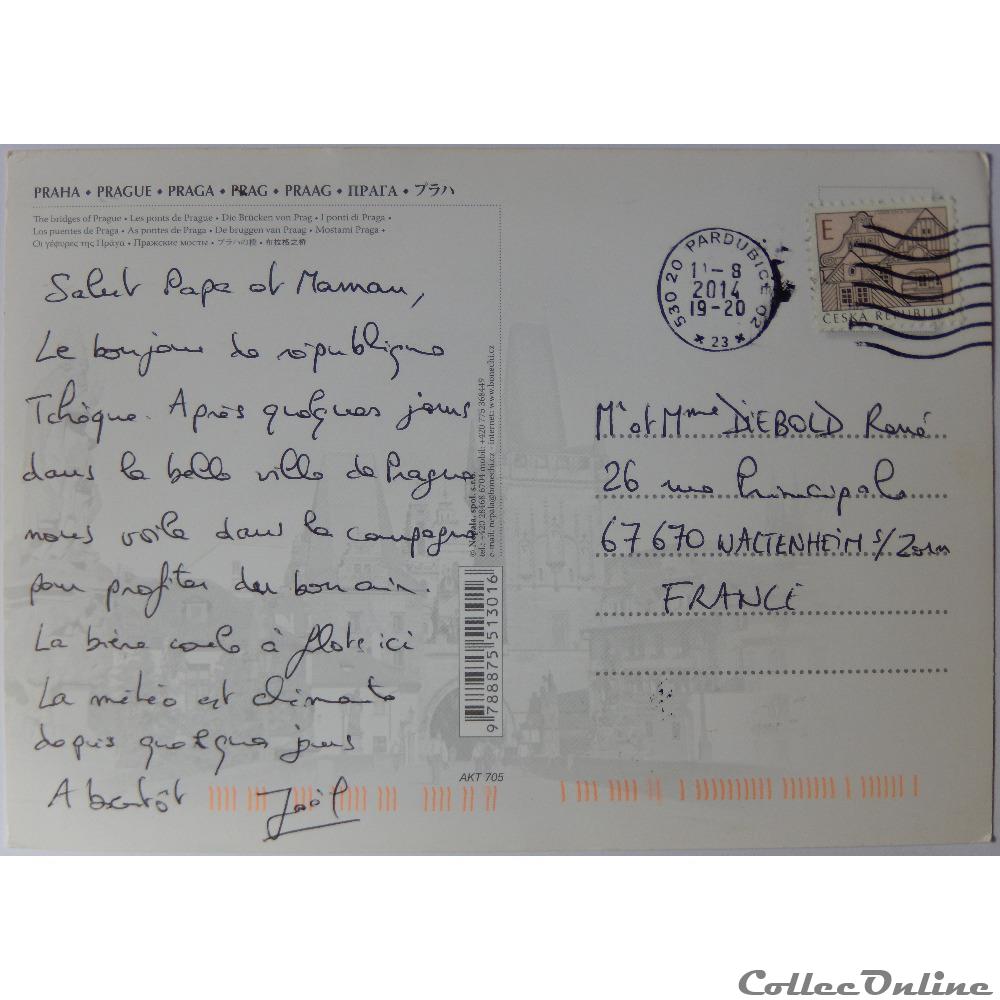 PRAHA • PRAGUE • PRAGA • PRAG • PRAAG • ПРАГА • プラハ
The bridges of Prague • Les ponts de Prague • Die Brücken von Prag • I ponti di Praga •
Los puentes de Praga • As pontes de Praga • De bruggen van Praag • Mostami Praga •
Οι γέφυρες της Πράγα • Пражские мостие • プラハの橋 • 布拉格之桥
Salut Papa et Maman,
Le bonjour de république
Tchèque. Après quelques jours
dans la belle ville de Prague
nous voila dans la campagne
pour profiter du bon air.
La bière coule à flots ici
La météo est clémente
depuis quelques jours
A bientôt Joël
© Nepala, spol. s.r.o.
tel.: +420 28468 6704 mobil: +420 775 368449
e-mail: nepala@bonechi.cz - internet: www.bonechi.cz
9788875513016
AKT 705
530 20 PARDUBICE 02
11-8
2014
19-20
* 23 *
E
ČESKÁ REPUBLIKA
Mr et Mme DIEBOLD René
26 rue Principale
67670 WALTENHEIM s/Zorn
FRANCE
CollecOnline